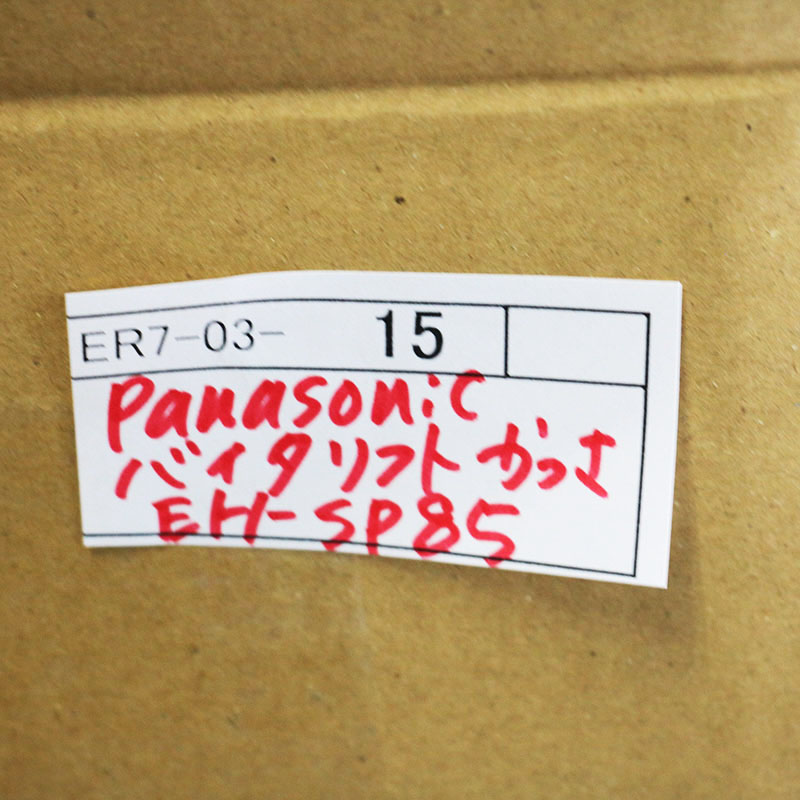 ER7-03- 15
Panasonic
バイタリフトかっさ
EH-SP85